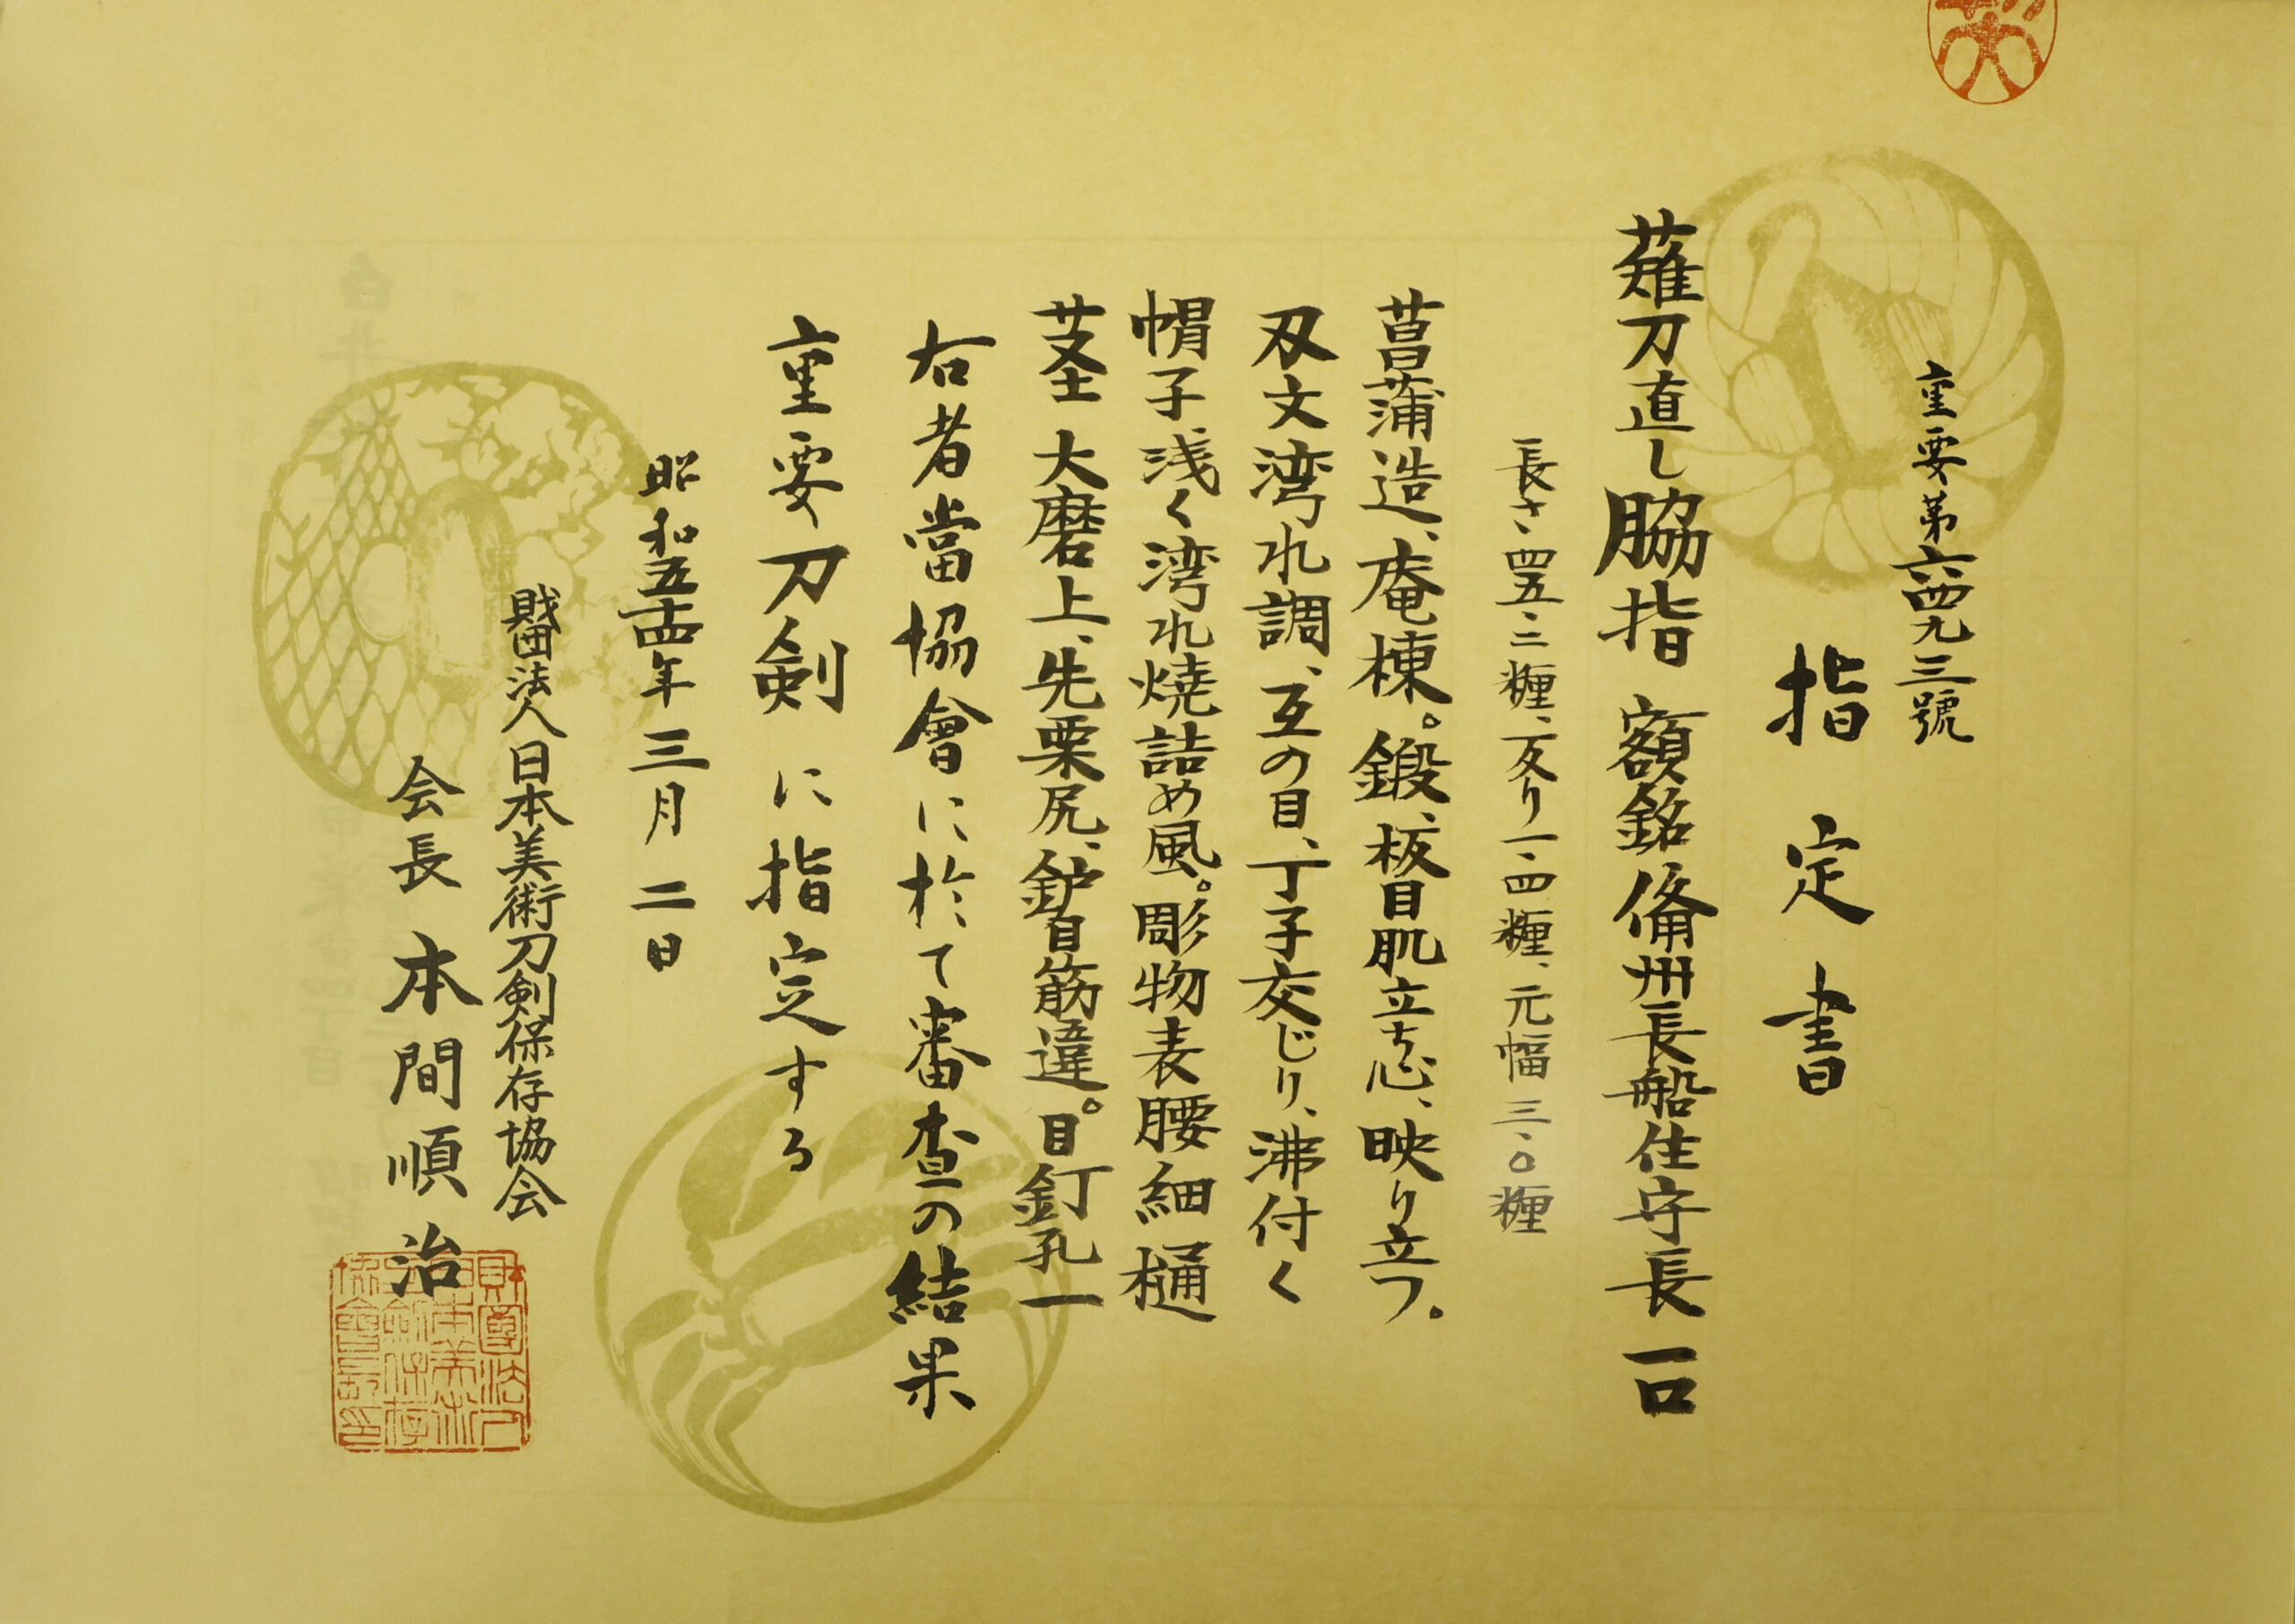 重要第六四九三號
指定書
薙刀直し脇指 額銘 備州長船住守長 一口
長さ、四五・二糎、反り一・四糎、元幅三・〇糎
菖蒲造、庵棟。鍛、板目肌立ち心、映り立つ。
刄文湾れ調、互の目、丁子交じり、沸付く
帽子、浅く湾れ焼詰め風。彫物表腰細樋
茎 大磨上、先栗尻、鈩目筋違。目釘孔一
右者當協會に於て審査の結果
重要刀剣に指定する
昭和五十四年三月二日
財団法人日本美術刀剣保存協会
会長 本間順治
財團法人日本美術刀劍保存協會長印